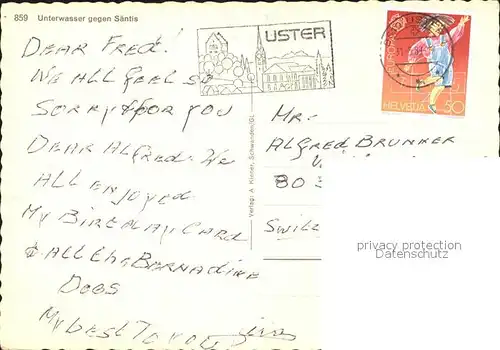 859 Unterwasser gegen Säntis
DEAR FRED!
WE ALL FEEL SO
SORRY FOR YOU
DEAR ALFRED. WE
ALL ENJOYED
MY BIRTHDAY CARD
& ALL THE BERNADINE
DOGS
MY BEST TO YOU
USTER
HELVETIA 50
MR.
ALFRED BRUNNER
80
SWITZ
Verlag: A. Kinner, Schwanden/Gl.
privacy protection
Datenschutz